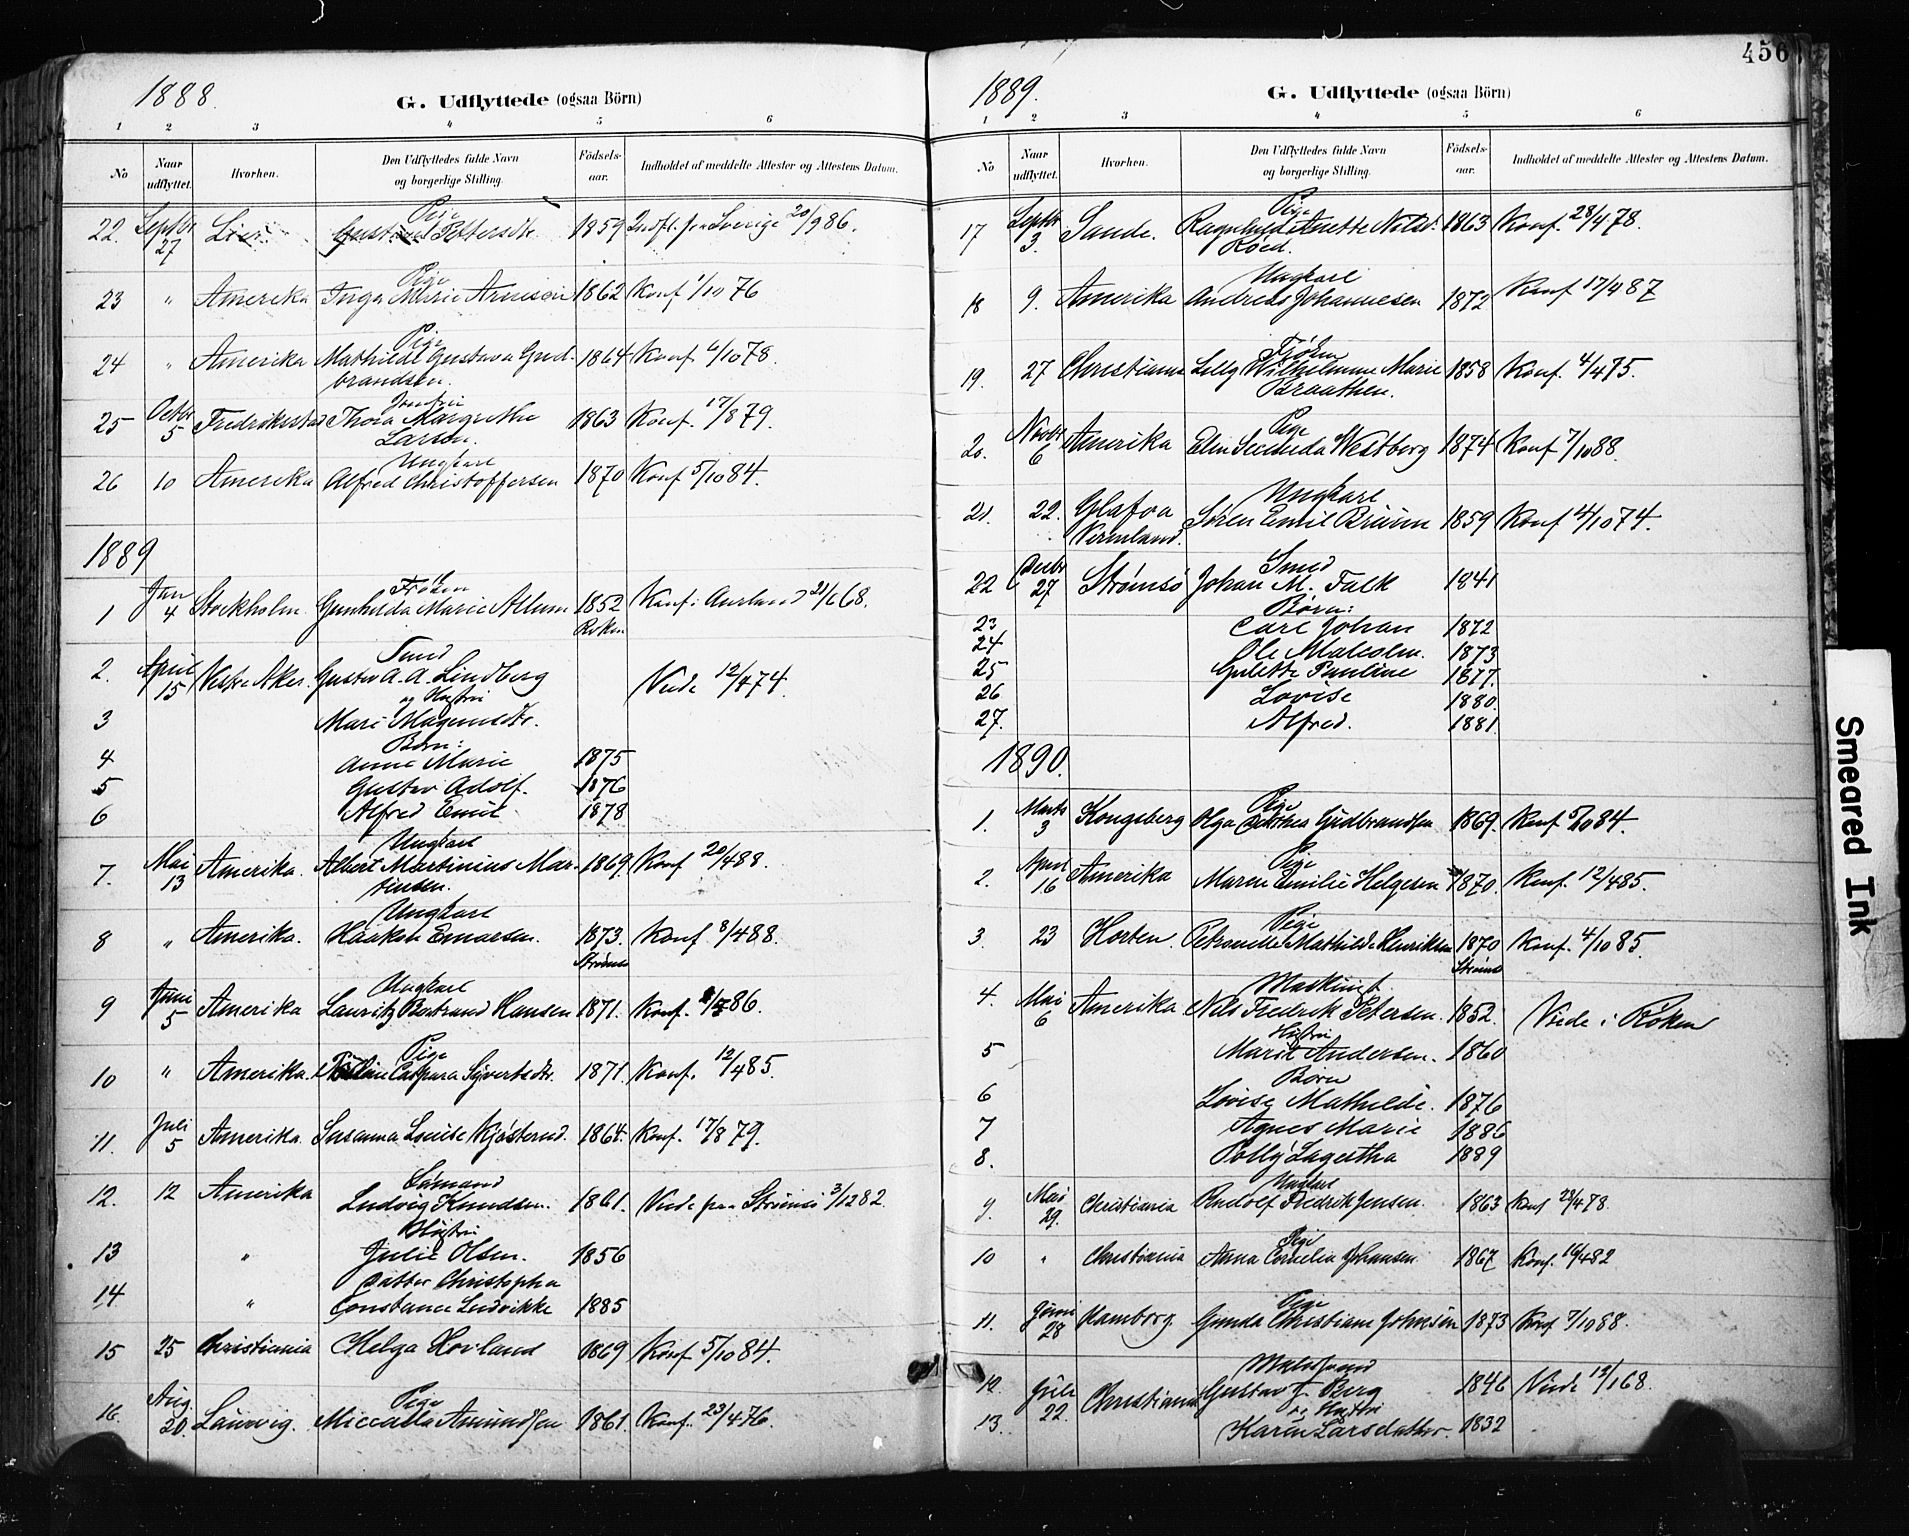 1888.
G. Udflyttede (ogsaa Börn)
1 2 3 4 5 6
No Naar udflyttet. Hvorhen. Den Udflyttedes fulde Navn og borgerlige Stilling. Födsels-aar. Indholdet af meddelte Attester og Attestens Datum.
Pige
22. Septbr 27 Lier. Pettersdtr. 1859 Indfl. fra Sverige 20/9 86.
Pige
23 " Amerika Inga Marie Arnesen 1862 Konf 1/10 76
Pige
24 " Amerika Mathilde Gustava Gud- 1864 Konf. 6/10 78.
brandsen.
Jomfru
25 Octbr 5 Fredriksstad Thora Margrethe 1863 Konf. 17/8 79.
Larsen.
Ungkarl
26 10 Amerika Alfred Christoffersen 1870 Konf 5/10 84.
1889
Frøken
1 Jan 4 Stockholm Gunhilda Marie Allum 1852 Konf. i Aurland 21/6 68.
Røken
Smed
2. April 15 Vestre Aker. Gustav A. A. Lindberg Viede 12/4 74.
og Hustru
3 Mari Magnusdtr.
Børn:
4 Anne Marie 1875
5 Gustav Adolf. 1876
6 Alfred Emil 1878
Ungkarl
7. Mai 13 Amerika. Albert Martinius Mar- 1869 Konf 20/4 88.
tinsen.
Ungkarl
8 " Amerika. Haakon Emarsen. 1873. Konf 8/4 88.
Strømsø
Ungkarl
9 Juni 5 Amerika Lauritz Bertrand Hansen 1871. Konf. 86.
Pige
10 " Amerika. Caspara Syvertsdtr. 1871. Konf. 12/4 85.
11. Juli 5 Amerika. Susanna Lovise Kjøsterud. 1864. Konf. 17/8 79.
Sømand
12. 12 Amerika Ludvig Knudsen. 1861. Viede paa Strømsø 3/12 82.
Hustru
13 " Julie Olsen. 1856
Datter Christopha
14. " Constance Ludvikke 1885
15 25 Christiania Helga Hoiland 1869 Konf 5/10 84.
Pige
16. Aug. 20. Laurvig. Miccalla Amundsen 1861 Konf. 23/4 76.
456
1889.
G. Udflyttede (ogsaa Börn)
1 2 3 4 5 6
No Naar udflyttet. Hvorhen. Den Udflyttedes fulde Navn og borgerlige Stilling. Födsels-aar. Indholdet af meddelte Attester og Attestens Datum.
Pige
17 Septbr 3. Sande. Ragnhild Anette Nilsd. 1863 Konf. 28/4 78.
Røed.
Ungkarl
18 9. Amerika Andreas Johannesen 1872 Konf 17/4 87
Frøken
19. 27 Christiania Lilly Wilhelmine Marie 1858 Konf. 4/4 75.
Braathen.
Pige
20. Novbr 6 Amerika Elin Westberg 1874 Konf 7/10 88.
Ungkarl
21. 22. Glafva Søren Emil Bruun 1859 Konf 4/10 74.
Vermland.
Smed
22 Decbr 27 Strømsø Johan M. Falk 1841
Børn:
23 Carl Johan 1872
24 Ole Malcolm. 1873
25 Gulette Pauline 1877.
26 Lovise 1880.
27. Alfred. 1881.
1890.
Pige
1. Marts 3 Kongsberg Olga Dorthea Gudbrandsen 1869. Konf 5/10 84.
Pige
2. April 16 Amerika Maren Emilie Helgesen 1870. Konf. 12/4 85.
Pige
3. 23 Horten. Petronelle Mathilde Henriksen 1870 Konf. 4/10 85.
Strømsø
Maskinist
4. Mai 6 Amerika Nils Fredrik Petersen. 1852. Viede i Røken
Hustru
5 Marit Andersen. 1860
Børn
6 Lovise Mathilde. 1876
7 Agnes Marie 1886
8. Polly Lagertha 1889
Ungkarl
9. Mai 29. Christiania Rudolf Fredrik Jensen. 1863 Konf 28/4 78.
Pige
10 " Christiania Anna Cornelia Johansen. 1867 Konf. 16/4 82
Pige
11. Juni 28 Hamborg. Gunda Christiane Johnsen 1873 Konf 7/10 88.
12. Juli 22. Christiania Gustav J. Berg 1846 Viede 12/1 68.
og Hustru
13. Karen Larsdatter. 1832
Smeared Ink